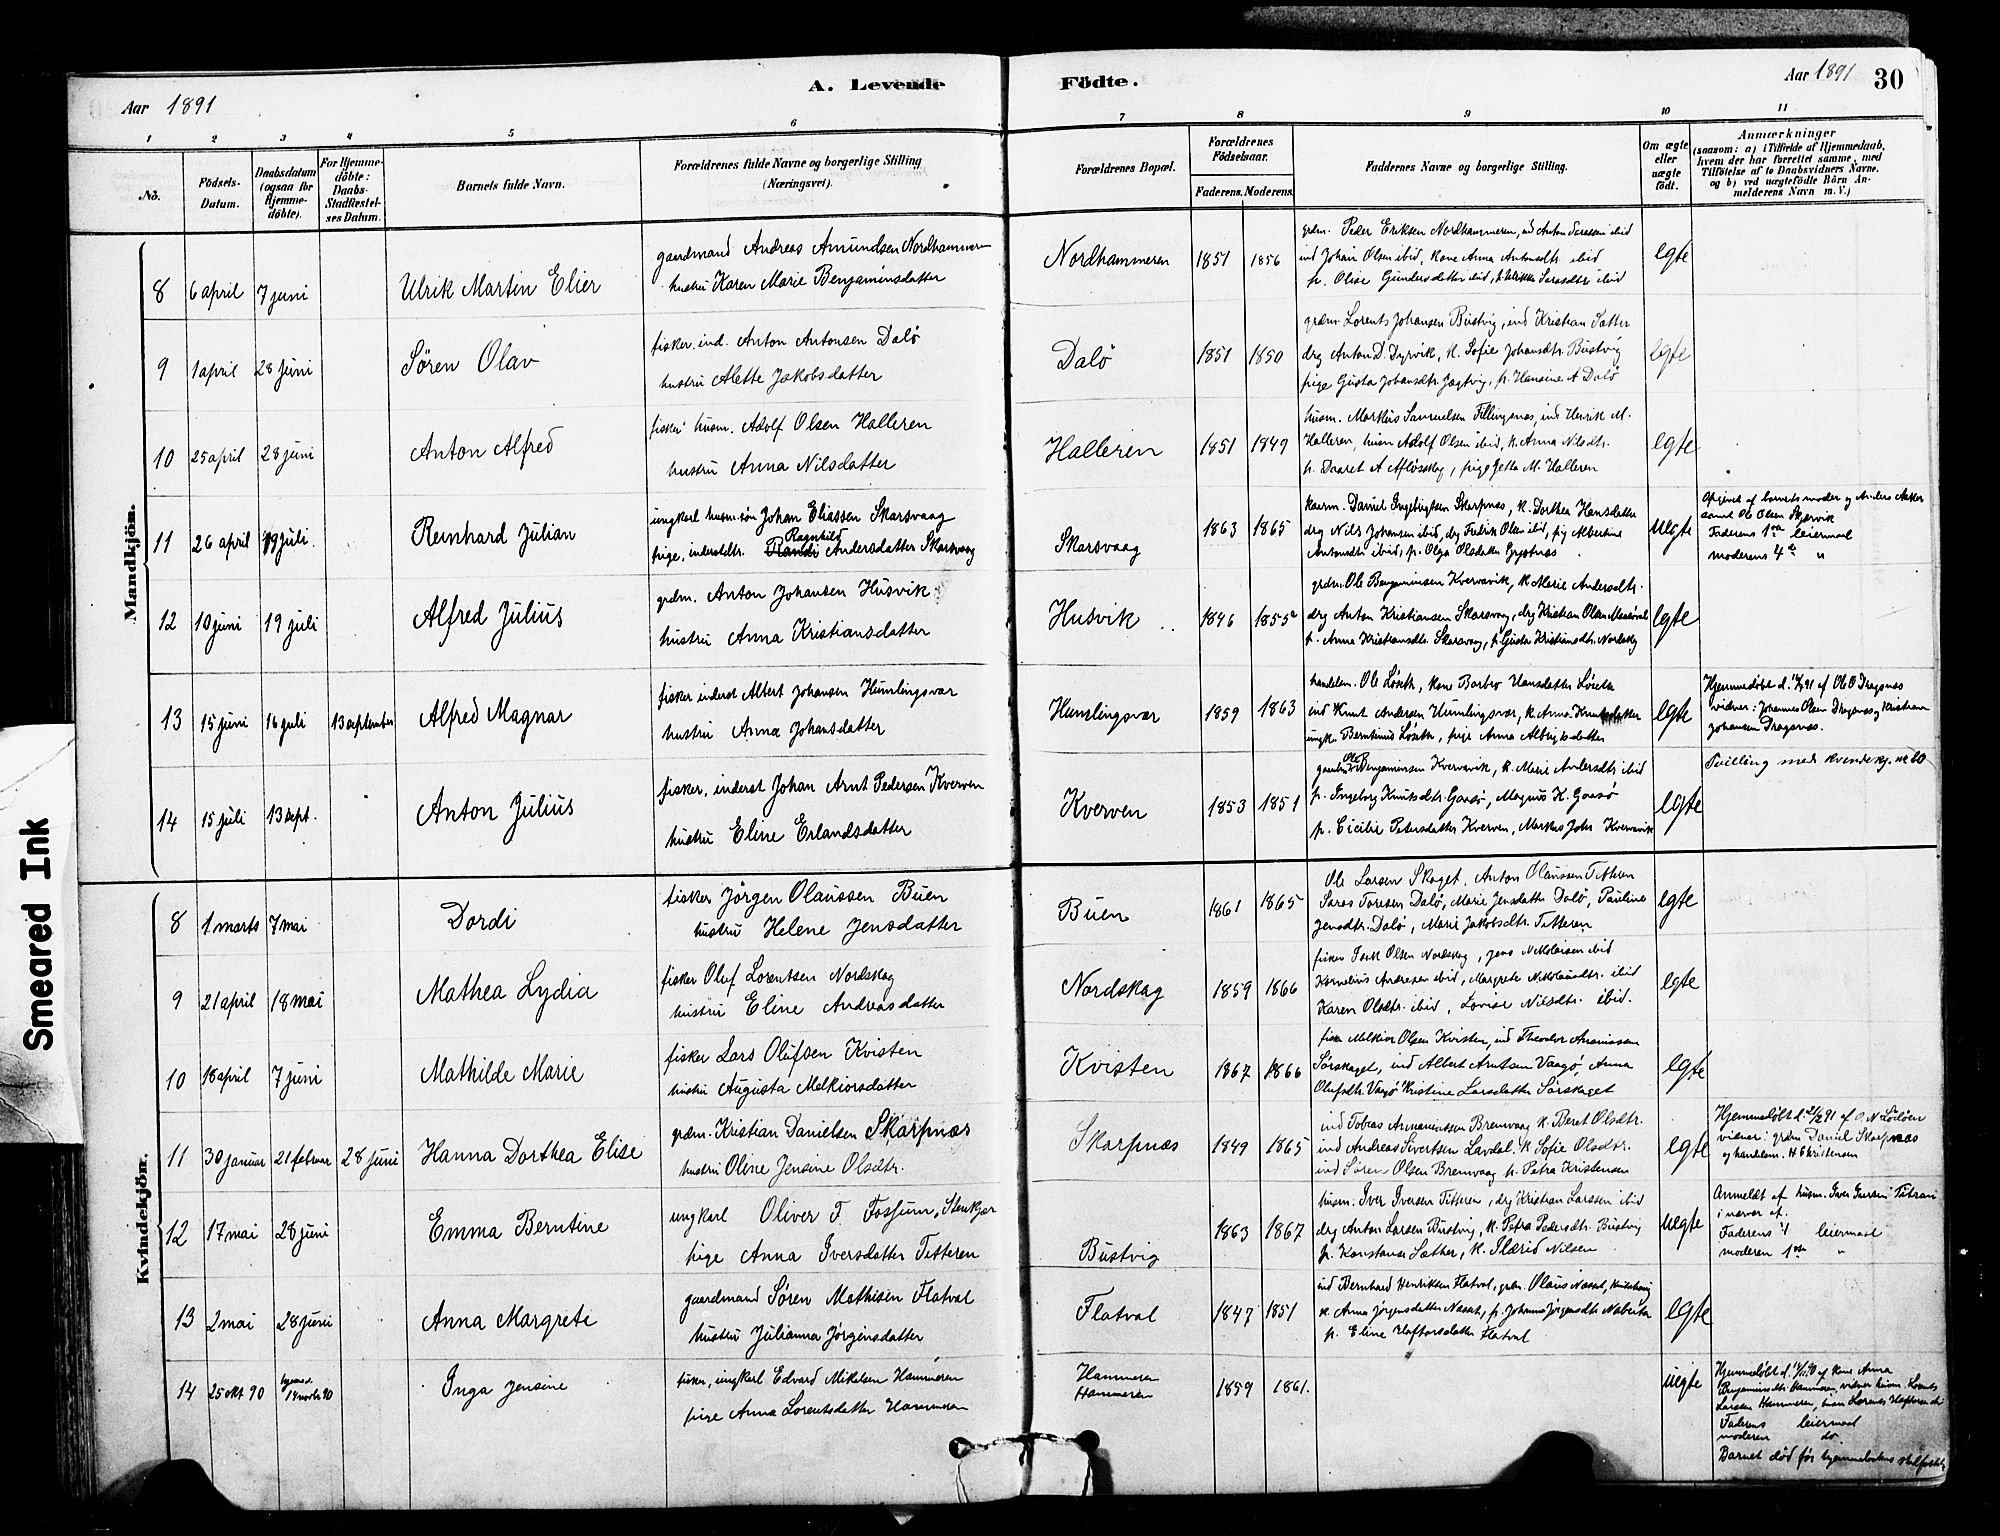 Smeared Ink
Aar 1891
A. Levende
Födte.
Aar 1891
30
1 2 3 4 5 6 7 8 9 10 11
No.
Födsels-Datum.
Daabsdatum (ogsaa for Hjemme-döbte).
For Hjemme-döbte: Daabs-Stadfæstel-ses Datum.
Barnets fulde Navn.
Forældrenes fulde Navne og borgerlige Stilling (Næringsvei).
Forældrenes Bopæl.
Forældrenes Födselsaar.
Faderens. Moderens.
Faddernes Navne og borgerlige Stilling.
Om ægte eller uægte födt.
Anmærkninger
(saasom: a) i Tilfælde af Hjemmedaab,
hvem der har forrettet samme, med
Tilföielse af to Daabsvidners Navne,
og b) ved uægtefödte Börn An-
melderens Navn m. V.)
Mandkjön.
8 6 april 7 juni Ulrik Martin Elier
gaardmand Andreas Amundsen Nordhammeren
hustru Karen Marie Benjaminsdatter
Nordhammeren 1851 1856
grdm. Peder Eriksen Nordhammeren, ind Anton Sarassen ibid
ind Johan Olsen ibid, kone Anna Antonsdtr ibid
p. Olise Gundersdatter ibid, p. Ulrikke Sarasdtr ibid
egte
9 1 april 28 juni Sören Olav
fisker. ind. Anton Antonsen Dalö
hustru Alette Jakobsdatter
Dalö 1851 1850
grdm. Lorents Johansen Bustvig, ind Kristian Sætter
drg Anton D. Dyrvik, k. Sofie Johansdtr. Bustvig
pige Gusta Johansdtr. Jægtvig, p. Hansine A Dalö
egte
10 25 april 28 juni Anton Alfred
fisker husm. Adolf Olsen Halleren
hustru Anna Nilsdatter
Halleren 1851 1849
husm. Markus Samuelsen Fillingsnæs, ind Henrik M.
Halleren, husm Adolf Olsen ibid, k. Anna Nilsdtr.
p. Daaret A Aflöseskag, pige Jetta M. Halleren
egte
11 26 april 19 juli. Reinhard Julian
ungkarl husm.sön Johan Eliassen Skarsvaag
Ragnhild
pige, inderstdtr. Randi Andersdatter Skarsvaag
Skarsvaag 1863 1865
kaarm. Daniel Ingebrigtsen Skarpnæs, k. Dorthea Hansdatter
drg Nils Johansen ibid, drg Fredrik Olsen ibid, pig Albertine
Antonsdtr ibid, p. Olga Olsdatter Grytnæs
uegte
Opgivet af barnets moder og Anders Aakre
samt Ole Olsen Skarvik
Faderens 1ste leiermaal
moderens 4de "
12 10 juni 19 juli Alfred Julius
grdm. Anton Johansen Husvik
hustru Anna Kristiansdatter
Husvik 1846 1855
grdm. Ole Benjaminsen Kvervavik, k. Marie Andersdtr.
drg Anton Kristiansen Skarsvaag, drg Kristian Olsen
p. Anna Kristiansdtr. Skarsvaag, p. Gusta Kristiansdtr. Nordskag
egte
13 15 juni 16 juli 13 september Alfred Magnar
fisker inderst Albert Johansen Humlingsvær
hustru Anna Johansdatter
Humlingsvær 1859 1863
handelsm. Ole Löseth, kone Barbro Hansdatter Löseth
ind Knut Andersen Humlingsvær, k. Anna Knutsdatter
ungk. Berntinus Löseth, pige Anna Albrigtsdatter
egte
Hjemmedöbt d. 91 af Ole O Dragsnæs
vidner: Johannes Olsen Dragsnæs og Kristian
Johansen Dragsnæs.
14 15 juli 13 sept. Anton Julius
fisker, inderst Johan Arnt Pedersen Kverven
hustru Eline Erlandsdatter
Kverven 1853 1851
gaardm Ole Benjaminsen Kvervavik, k. Marie Andersdtr ibid
p. Ingeborg Knutsdtr. Gaasö, Magnus K. Gaasö
p. Cicilie Petersdatter Kverven, Markus Johs Kvervavik
egte
Tvilling med kvindekj. nr 20
Kvindekjön.
8 1 marts 7 mai Dordi
fisker Jörgen Olaussen Buen
hustru Helene Jensdatter
Buen 1861 1865
Ole Larsen Skaget. Anton Olaussen Titteren
Saras Toresen Dalö, Marie Jensdatter Dalö, Pauline
Jensdtr. Dalö, Marie Jakobsdtr. Titteren
egte
9 21 april 18 mai Mathea Lydia
fisker Oluf Lorentsen Nordskag
hustru Eline Andreasdatter
Nordskag 1859 1866
fisker Isak Olsen Nordskag, Jens Nikolaisen ibid
Kornelius Andresen ibid, Margrete Nikolausdtr. ibid
Karen Olsdtr. ibid, Lovise Nilsdtr. ibid.
egte
10 18 april 7 juni Mathilde Marie
fisker Lars Olufsen Kvisten
hustru Augusta Melkiorsdatter
Kvisten 1867 1866
fisker Melkior Olsen Kvisten, ind Theodor Ananiassen
Sörskaget, ind Albert Arntsen Vaagö, Anna
Olufsdtr. Vaagö Kristine Larsdatter Sörskaget
egte
11 30 januar 21 februar 28 juni Hanna Dorthea Elise
grdm. Kristian Danielsen Skarpnæs
hustru Oline Jensine Olsdtr.
Skarpnæs 1849 1865
ind Tobias Annaniassen Bremvaag k. Beret Olsdtr.
ind Andreas Sivertsen Lavdal. k. Sofie Olsdtr.
ind Sören Olsen Bremvaag p. Petra Kristensen
egte
Hjemmedöbt d 21/2 91 af O N Lörlöen
vidner: grdm Daniel Skarpnæs
og handelsm. H Christensen
12 17 mai 28 juni Emma Berntine
ungkarl Oliver F Fossum, Stenkjær
pige Anna Iversdatter Titteren
Bustvig 1863 1867
husm. Iver Iversen Titteren, drg Kristian Larssen ibid
drg Anton Larsen Bustvig, k. Petra Pedersdtr. Bustvig
p. Konstanse Sæther, k. Nilsen
uegte
Anmeldt af husm. Iver Iversen Titran
i nærvær af.
Faderens leiermaal
moderen 1ste "
13 2 mai 28 juni Anna Margrete
gaardmand Sören Mathisen Flatval
hustru Julianna Jörgensdatter
Flatval 1847 1851
ind Bernhard Henriksen Flatval, grdm. Olaus
k. Anna Jörgensdatter p. Johanna Jörgensdtr
p. Eline Haftorsdatter Flatval
egte
14 25 okt 90 hjemed. 14 novbr 90 Inga Jensine
fisker, ungkarl Edvard Mikalsen Hammeren
pige Anna Lorentsdatter Hammeren
Hammeren
Hammeren
1859 1861.
uegte
Hjemmedöbt d. 90 af kone Anna
Benjaminsdtr. Hammeren, vidner husm. Lorents
Larssen Hammeren,
Faderens leiermaal
moderen do
Barnet död för